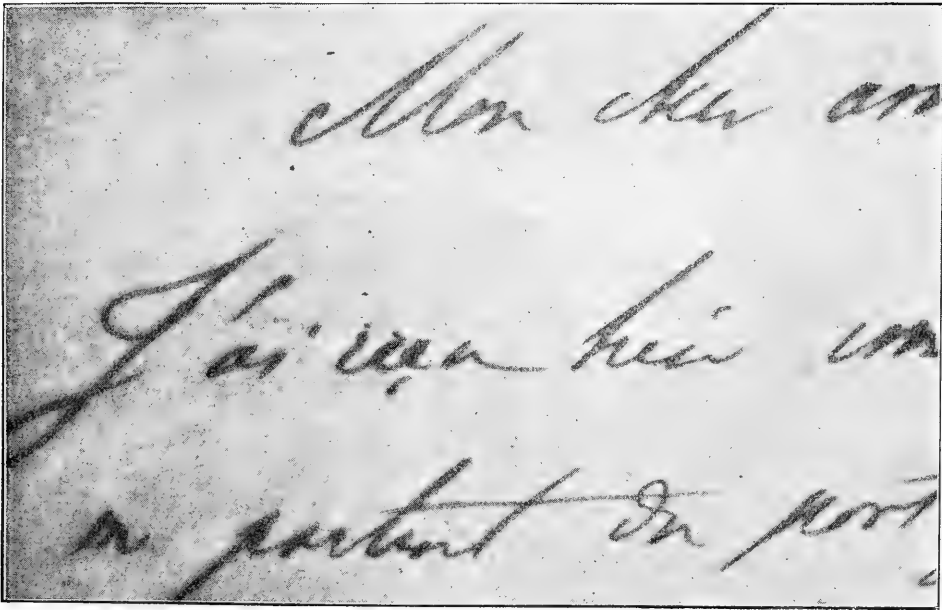 Mon cher am
J'ai reçu hier un
en partant du port